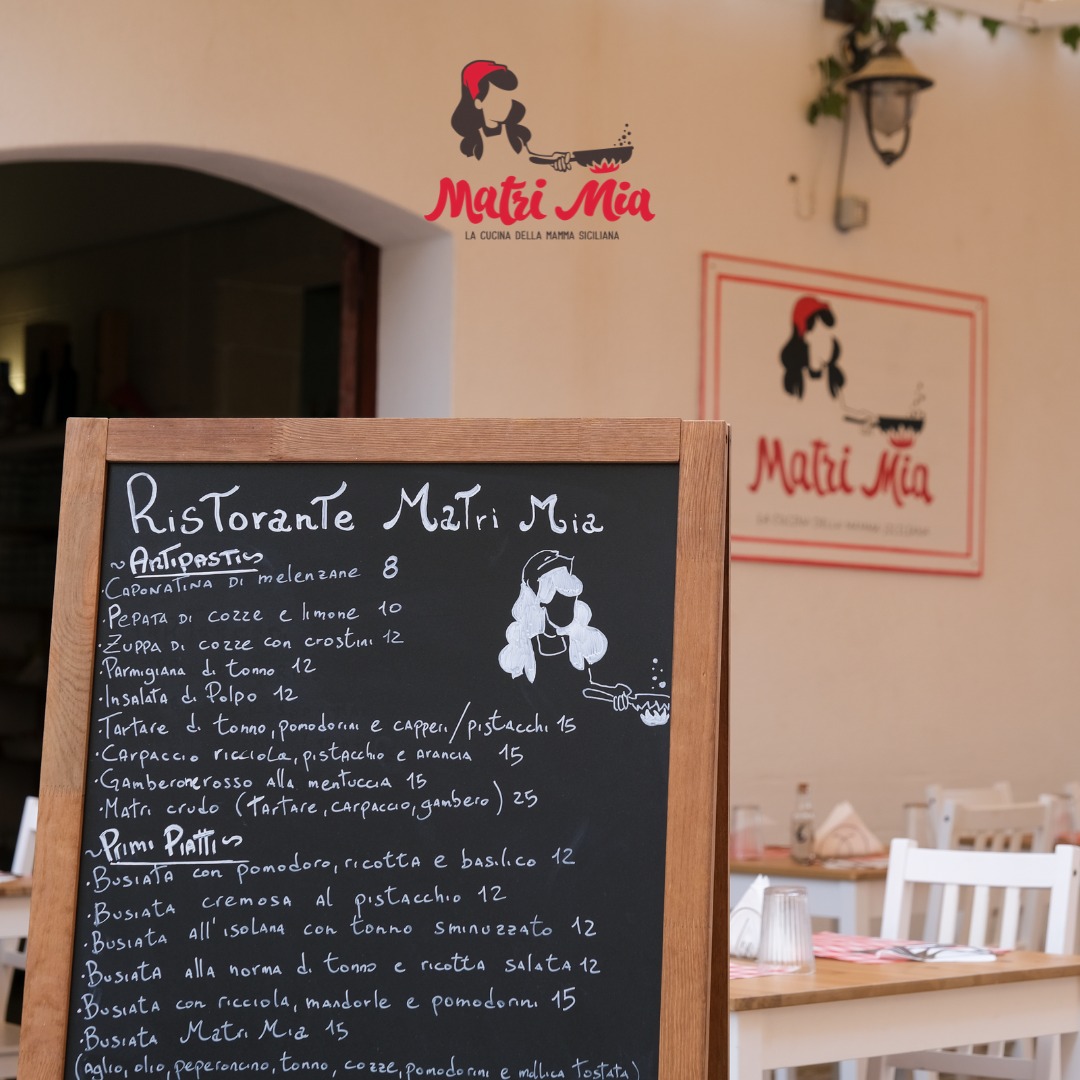 Matri Mia
LA CUCINA DELLA MAMMA SICILIANA
Matri Mia
LA CUCINA DELLA MAMMA SICILIANA
RisTorante Matri Mia
~Antipasti~
·Caponatina di melenzane 8
·Pepata di cozze e limone 10
·Zuppa di cozze con crostini 12
·Parmigiana di tonno 12
·Insalata di Polpo 12
·Tartare di tonno, pomodorini e capperi/pistacchi 15
·Carpaccio ricciola, pistacchio e arancia 15
·Gamberone rosso alla mentuccia 15
·Matri crudo (tartare, carpaccio, gambero) 25
~Primi Piatti~
·Busiata con pomodoro, ricotta e basilico 12
·Busiata cremosa al pistacchio 12
·Busiata all'isolana con tonno sminuzzato 12
·Busiata alla norma di tonno e ricotta salata 12
·Busiata con ricciola, mandorle e pomodorini 15
·Busiata Matri Mia 15
(aglio, olio, peperoncino, tonno, cozze, pomodorini e mollica tostata)